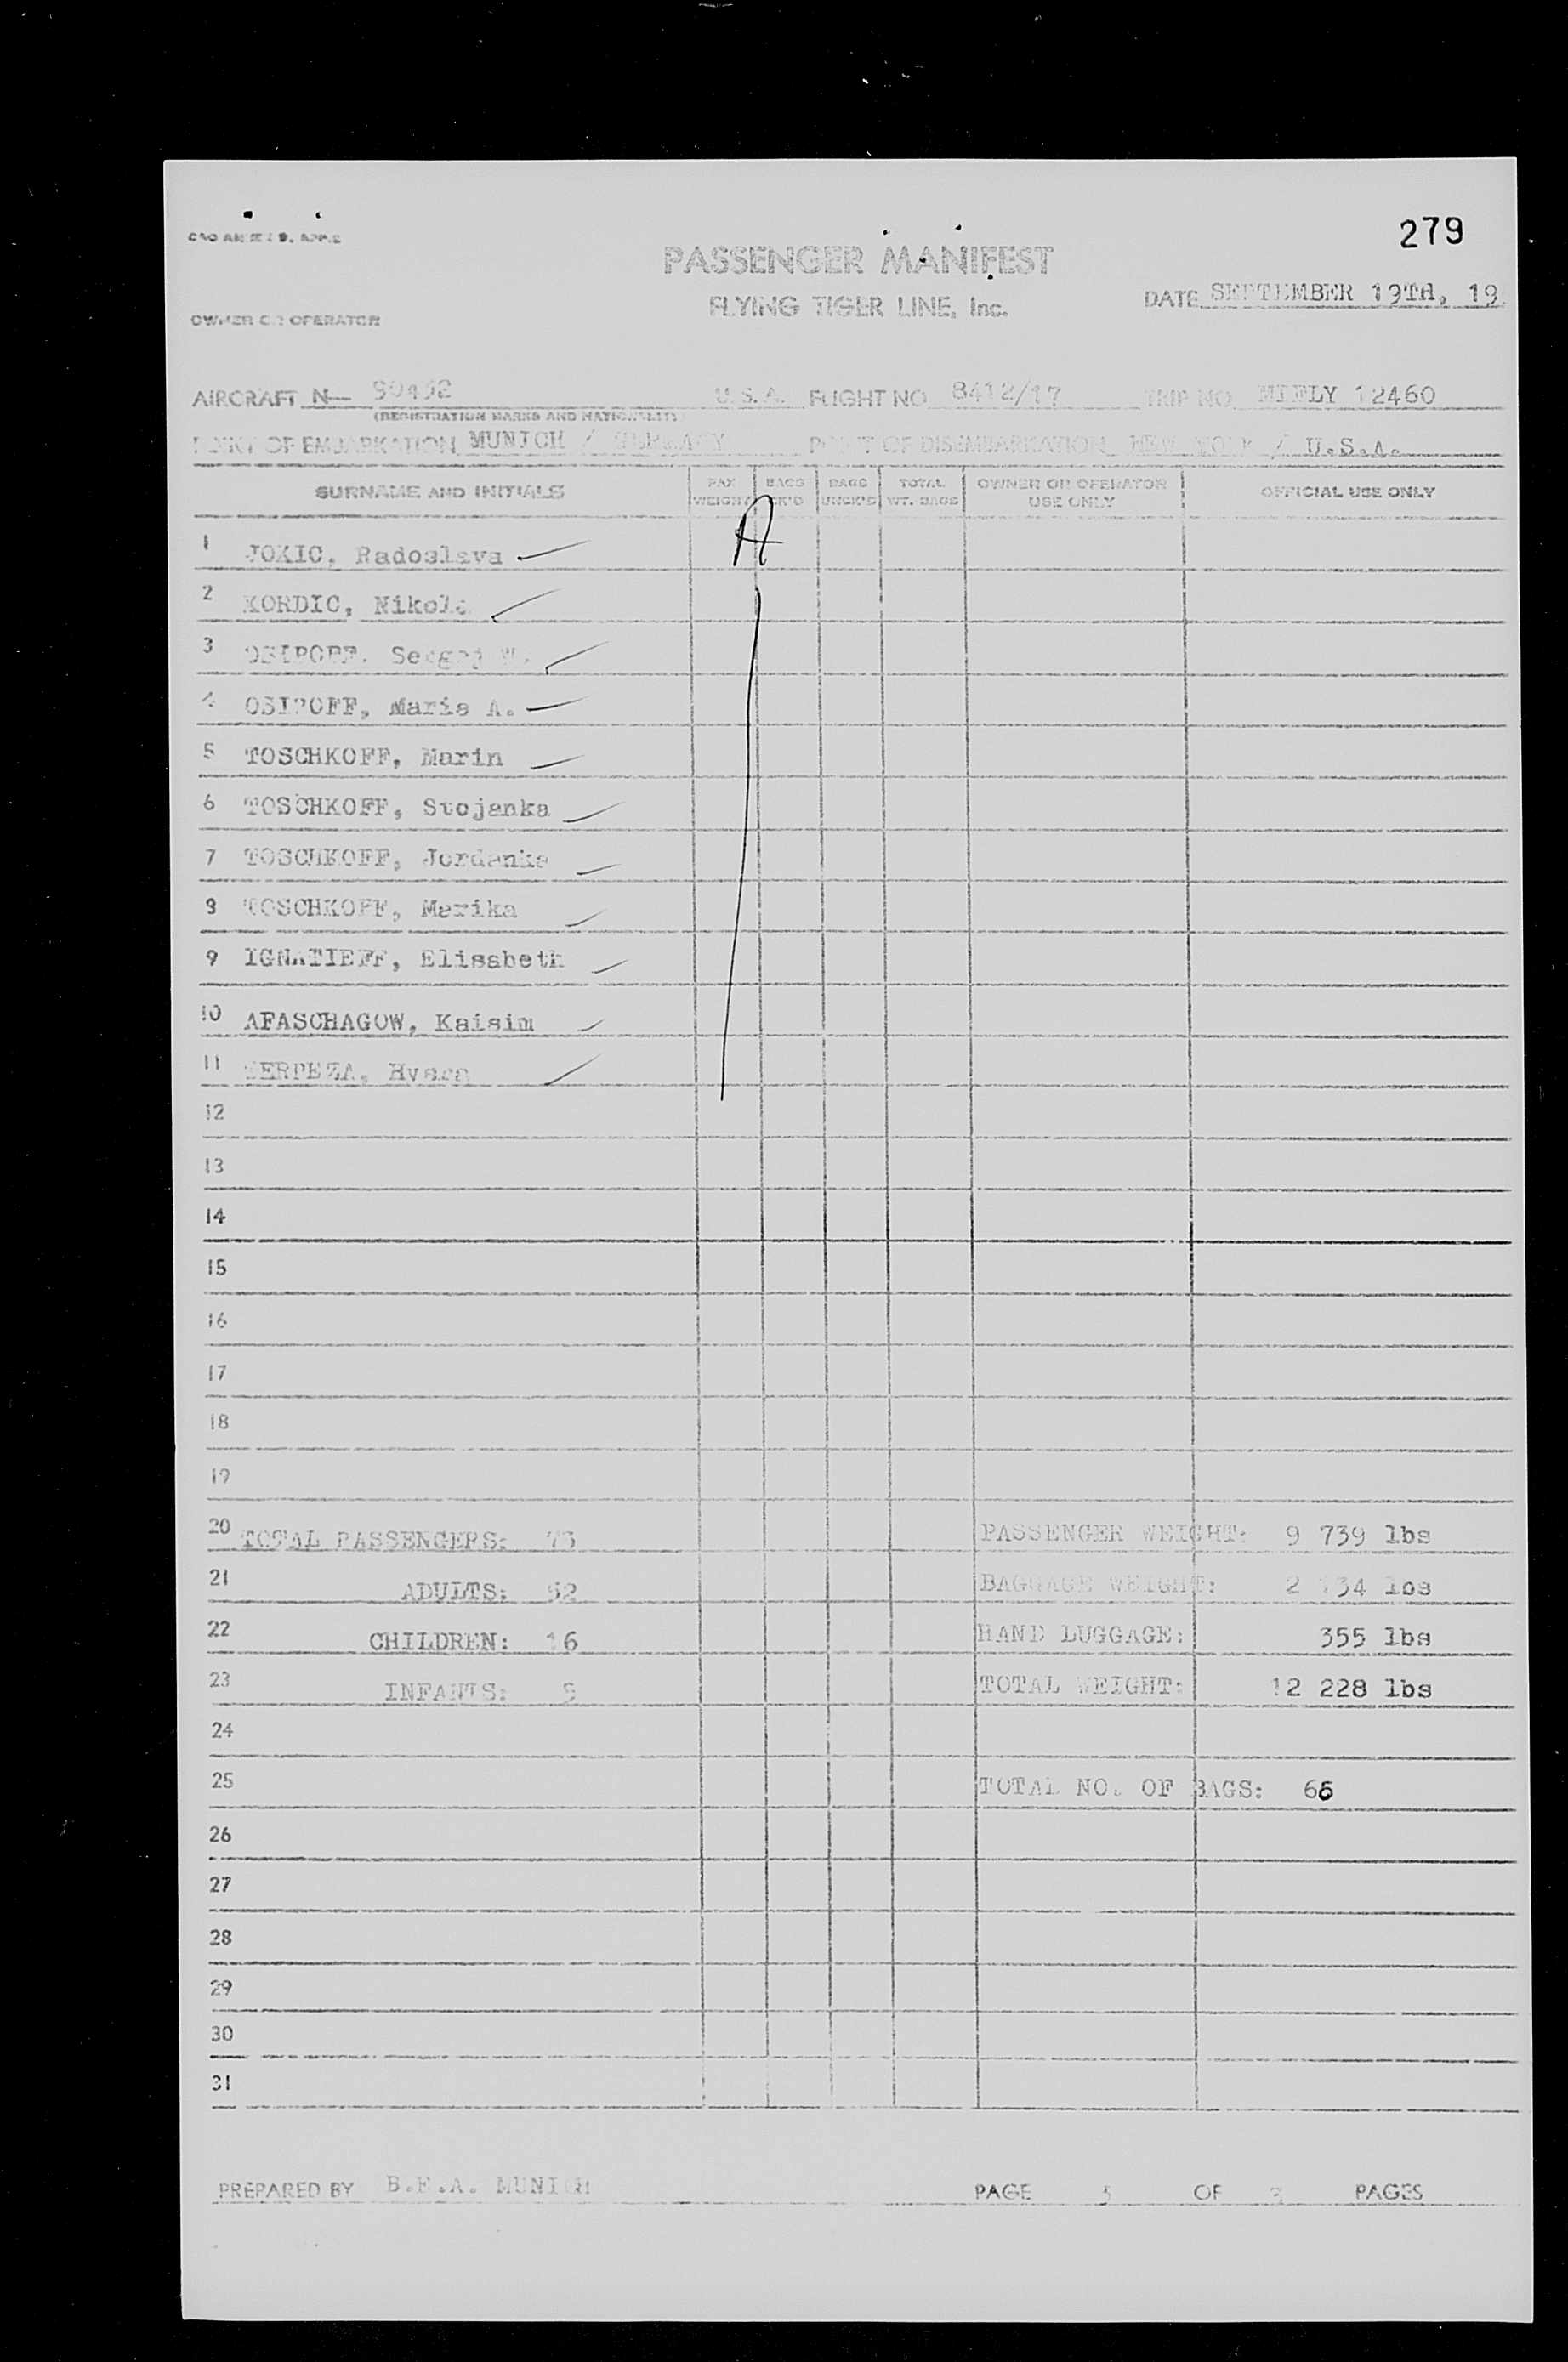 279
PASSENGER MANIFEST
FLYING TIGER LINE, Inc.
DATE SEPTEMBER 19TH, 19
OWNER OR OPERATOR
AIRCRAFT N— U.S.A. FLIGHT NO 8412/17 TRIP NO. MIFLY 12460
(REGISTRATION MARKS AND NATIONALITY)
POINT OF EMBARKATION MUNICH / GERMANY POINT OF DISEMBARKATION NEW YORK / U.S.A.
SURNAME AND INITIALS PAX WEIGHT BAGS CK'D BAGS UNCK'D TOTAL WT. BAGS OWNER OR OPERATOR USE ONLY OFFICIAL USE ONLY
A
1 JOKIC, Radoslava
2 KORDIC, Nikola
3 OSIPOFF, Sergej W.
4 OSIPOFF, Maria A.
5 TOSCHKOFF, Marin
6 TOSCHKOFF, Stojanka
7 TOSCHKOFF, Jordanka
8 TOSCHKOFF, Marika
9 IGNATIEFF, Elisabeth
10 AFASCHAGOW, Kaisim
11 Hvara
12
13
14
15
16
17
18
19
20 TOTAL PASSENGERS: 73 PASSENGER WEIGHT: 9 739 lbs
21 ADULTS: 52 BAGGAGE WEIGHT: 2 134 lbs
22 CHILDREN: 16 HAND LUGGAGE: 355 lbs
23 INFANTS: 5 TOTAL WEIGHT: 12 228 lbs
24
25 TOTAL NO. OF BAGS: 66
26
27
28
29
30
31
PREPARED BY B.F.A. MUNICH PAGE 3 OF 3 PAGES